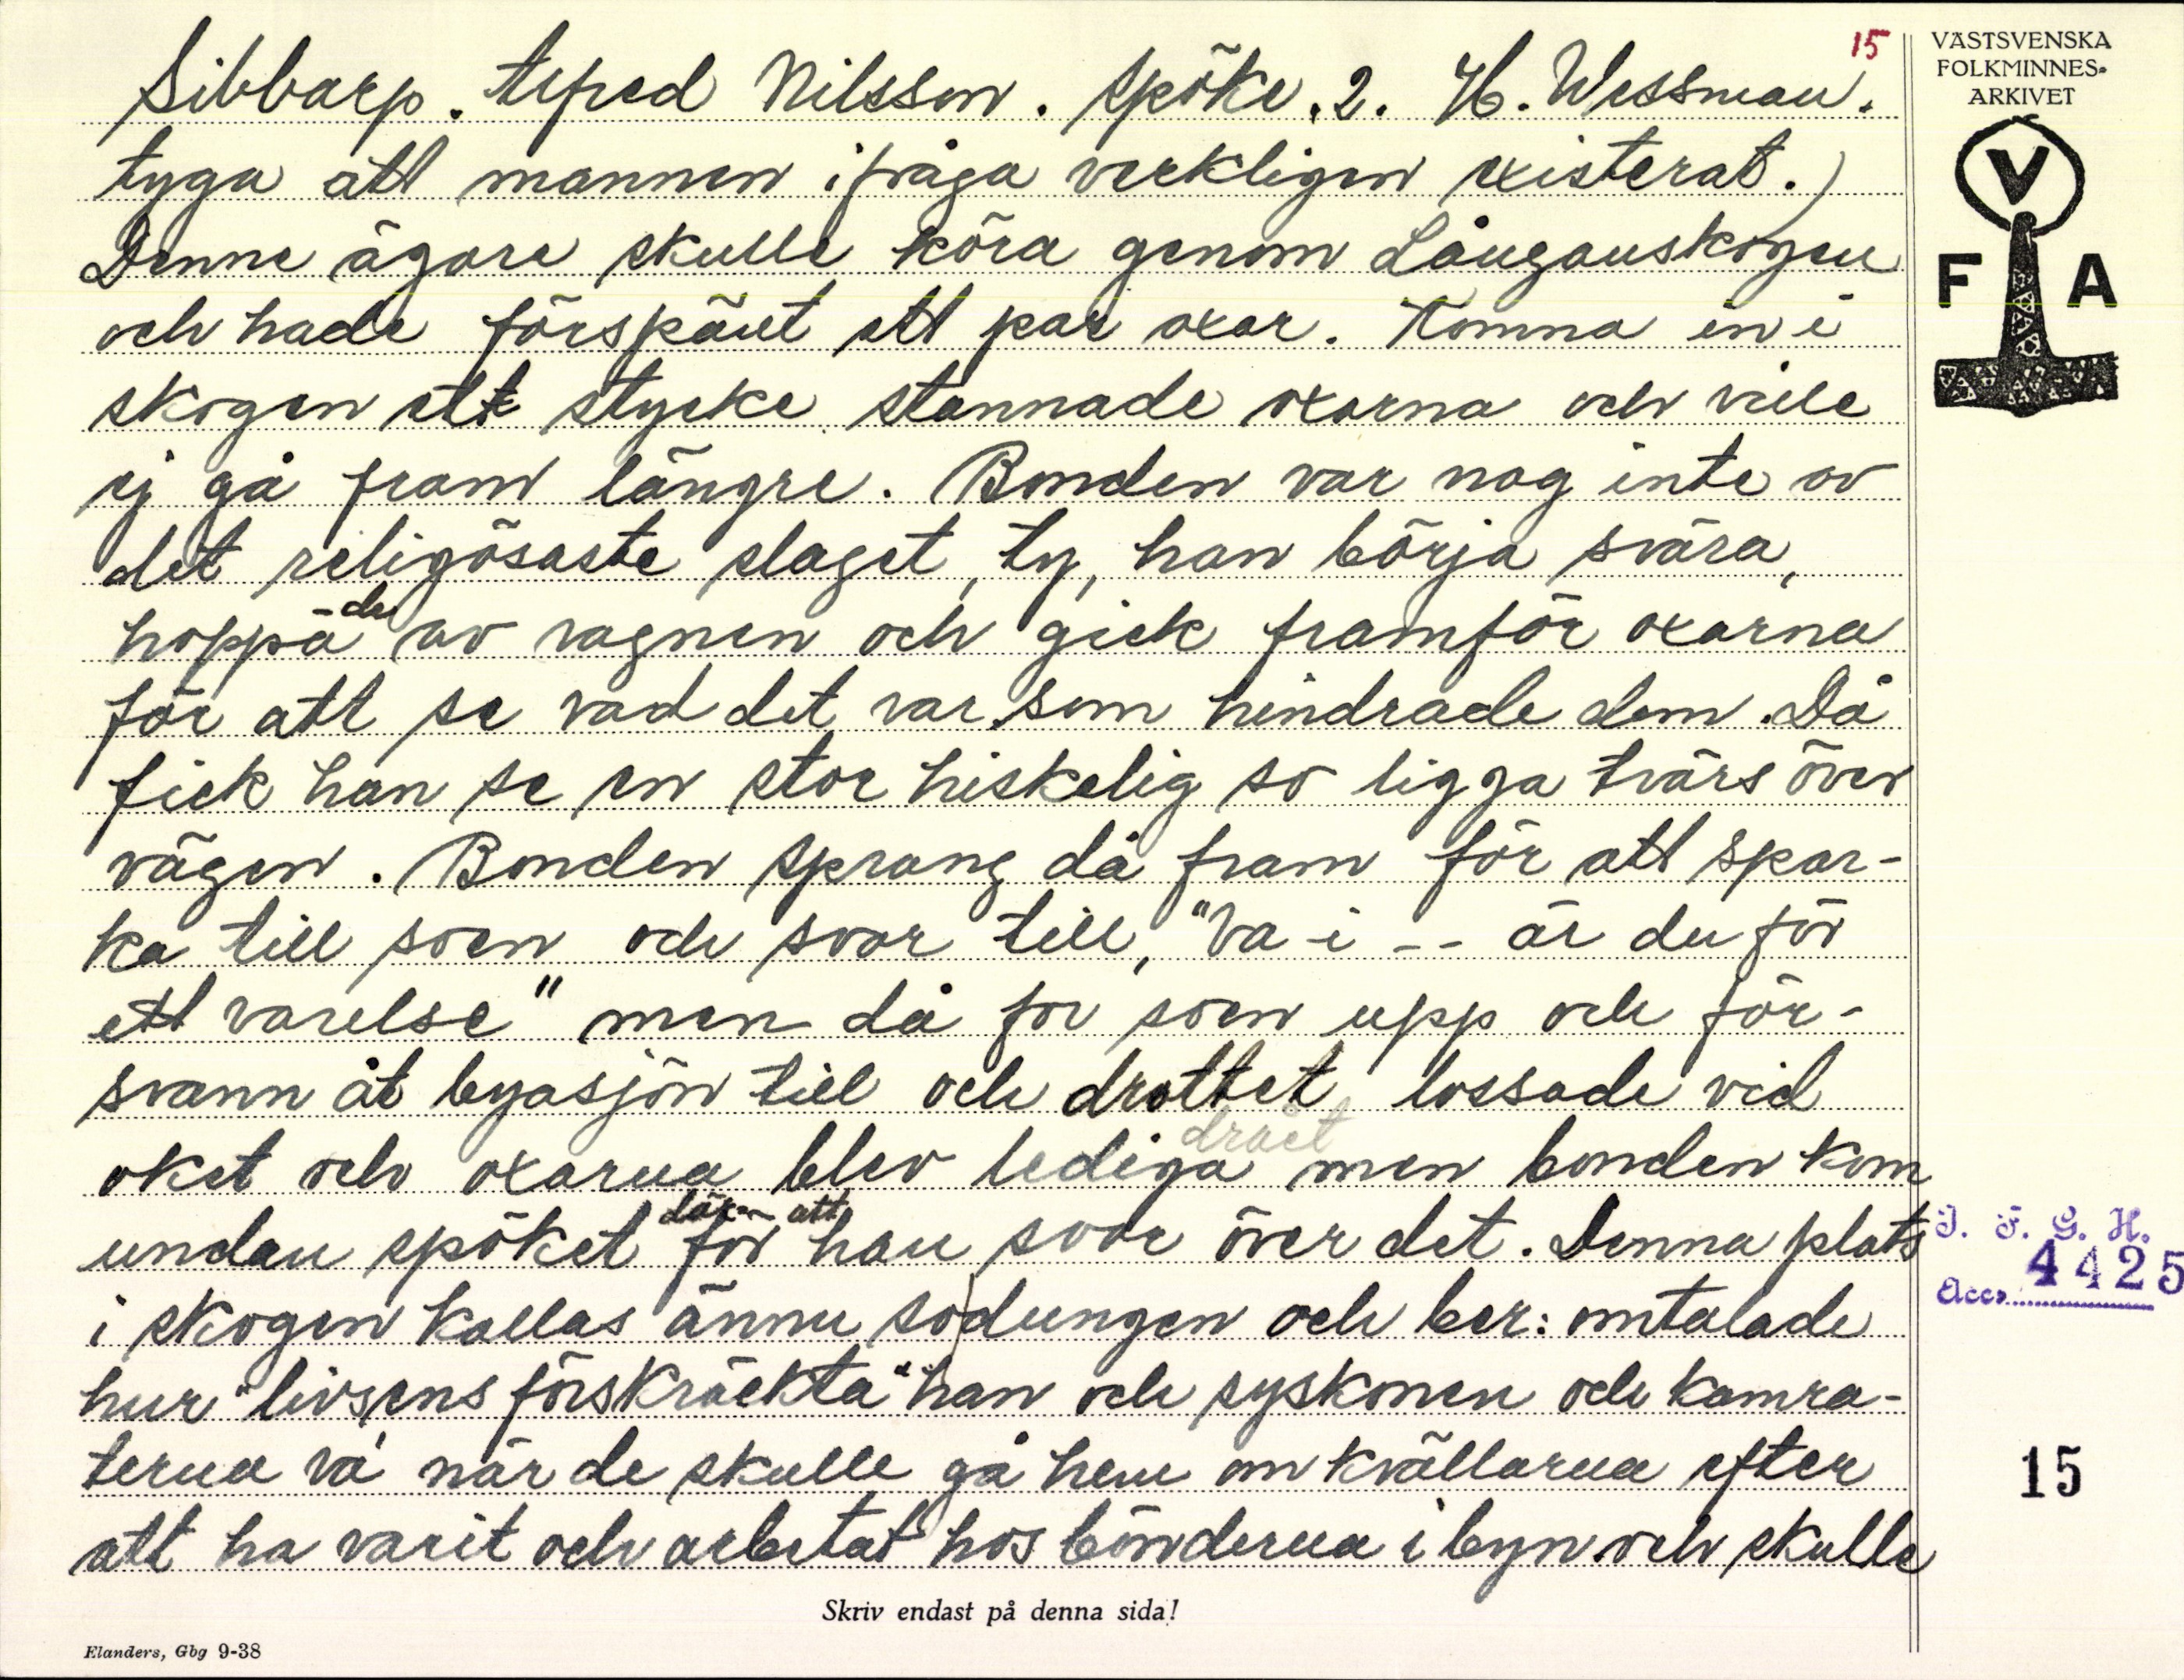 15
Sibbarp. Alfred Nilsson. Spöke. 2. H. Wessman.
tyga att mannen ifråga verkligen existerat.)
Denne ägare skulle köra genom Långanskogen
och hade förspänt ett par oxar. Komna in i
skogen ett stycke stannade oxarna och ville
ej gå fram längre. Bonden var nog inte av
det religösaste slaget, ty, han börja svära,
hoppa-de av vagnen och gick framför oxarna
för att se vad det var som hindrade dem. Då
fick han se en stor hiskelig so ligga tvärs över
vägen. Bonden sprang då fram för att spar-
ka till soen och svor till, "Va i -- är du för
ett varelse" men då for soen upp och för-
svann åt byasjön till och drattet lossade vid
dräet
oket och oxarna blev lediga men bonden kom
undan spöket för därför att han svor över det. Denna plats
i skogen kallas ännu sodungen och ber: omtalade
hur "livsens förskräckta" han och syskonen och kamra-
terna va' när de skulle gå hem om kvällarna efter
att ha varit och arbetat hos bönderna i byn och skulle
Skriv endast på denna sida!
Elanders, Gbg 9-38
VÄSTSVENSKA
FOLKMINNES-
ARKIVET
V
F A
I. F. G. H.
Acc. 4425
15